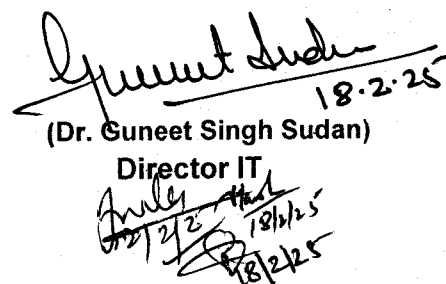 Guneet Sudan
18.2.25
(Dr. Guneet Singh Sudan)
Director IT
18/2/25
18/2/25